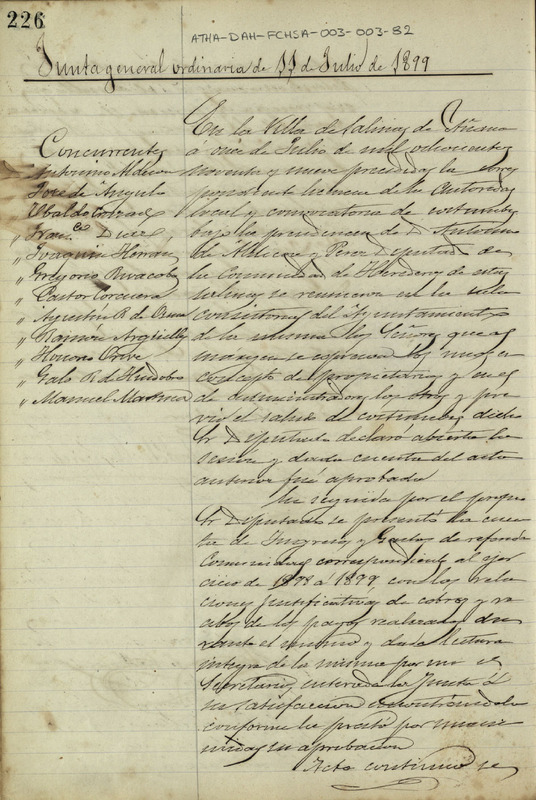 226
ATHA-DAH-FCHSA-003-003-82
Junta general ordinaria de 11 de Julio de 1899
Concurrentes
Antonino
José de Angulo
Ubaldo
" Fran.co Diez
" Joaquin Herran
" Gregorio Ruvacoba
" Pastor Corcuera
" Agustin R. de
" Ramón Argüelles
" Honorio Orive
" Galo R. de Huidobro
" Manuel
En la Villa de Salinas de Añana
á once de Julio de mil ochocientos
noventa y nueve precedida la corres
pondiente licencia de la Autoridad
local y convocatoria de costumbre
bajo la presidencia de D. Antonino
de y Perez Diputado de
la Comunidad de Herederos de estas
Salinas, se reunieron en la sala
consistorial del Ayuntamiento
de la misma los Señores que al
margen se espresan los unos en
concepto de propietarios y en el
de administradores los otros y pre
vio el saludo de costumbre, dicho
Sr. Diputado declaró abierta la
sesión y dada cuenta del acta
anterior fué aprobada
En seguida por el propio
Sr. Diputado se presentó la cuen
ta de Ingresos y Gastos de referida
Comunidad correspondiente al ejer
cicio de 1898 á 1899 con las rela
ciones justificativas de cobros y re
cibos de los pagos realizados du
rante el mismo y dada lectura
integra de la misma por mi el
Secretario, enterada la Junta á
su satisfaccion encontrandola
conforme la prestó por unani
midad su aprobacion
Acto continuo se